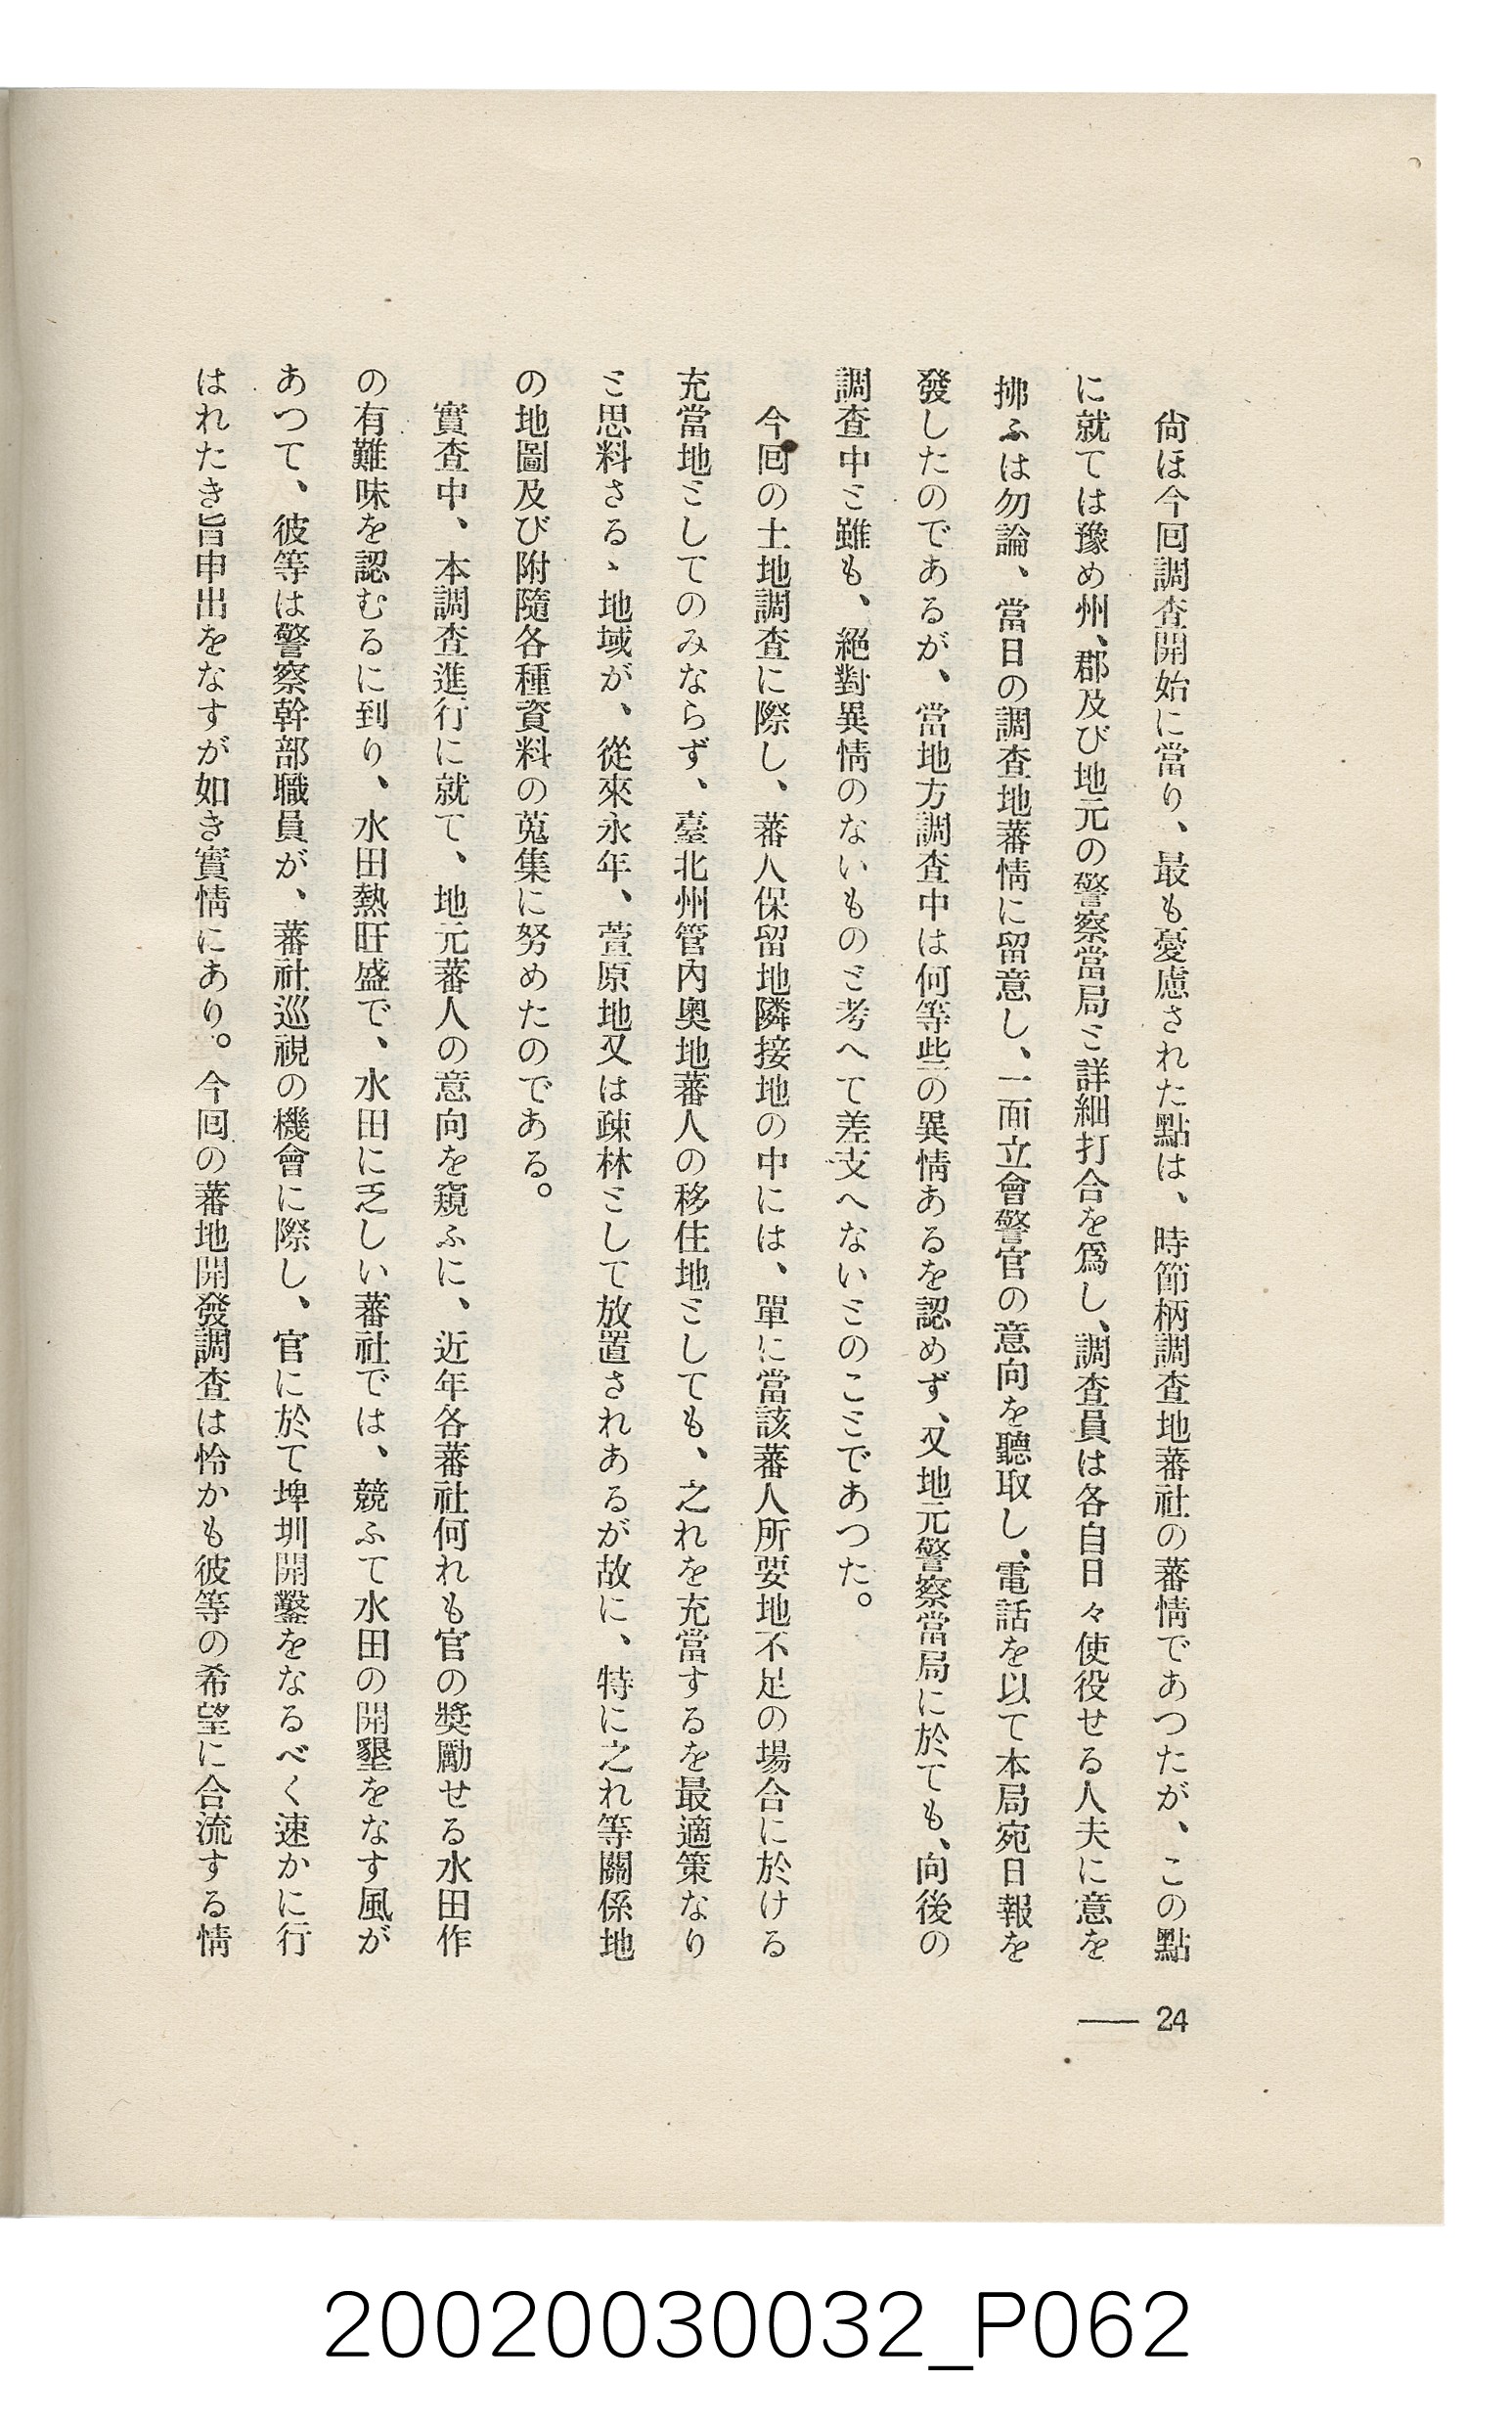 尙ほ今回調査開始に當り、最も憂慮された點は、時節柄調査地蕃社の蕃情であつたが、この點
に就ては豫め州、郡及び地元の警察當局ミ詳細打合を爲し、調査員は各自日々使役せる人夫に意を
拂ふは勿論、當日の調査地蕃情に留意し、一面立會警官の意向を聽取し、電話を以て本局宛日報を
發したのであるが、當地方調査中は何等些の異情あるを認めず、又地元警察當局に於ても、向後の
調査中ミ雖も、絕對異情のないものミ考へて差支へないミのこミであつた。
今回の土地調査に際し、蕃人保留地隣接地の中には、單に當該蕃人所要地不足の場合に於ける
充當地ミしてのみならず、臺北州管內奧地蕃人の移住地ミしても、之れを充當するを最適策なり
ミ思料さるゝ地域が、從來永年、萱原地又は疎林ミして放置されあるが故に、特に之れ等關係地
の地圖及び附隨各種資料の蒐集に努めたのである。
實査中、本調査進行に就て、地元蕃人の意向を窺ふに、近年各蕃社何れも官の奬勵せる水田作
の有難味を認むるに到り、水田熱旺盛で、水田に乏しい蕃社では、競ふて水田の開墾をなす風が
あつて、彼等は警察幹部職員が、蕃社巡視の機會に際し、官に於て埤圳開鑿をなるべく速かに行
はれたき旨申出をなすが如き實情にあり。今回の蕃地開發調査は恰かも彼等の希望に合流する情
24 —
20020030032_P062